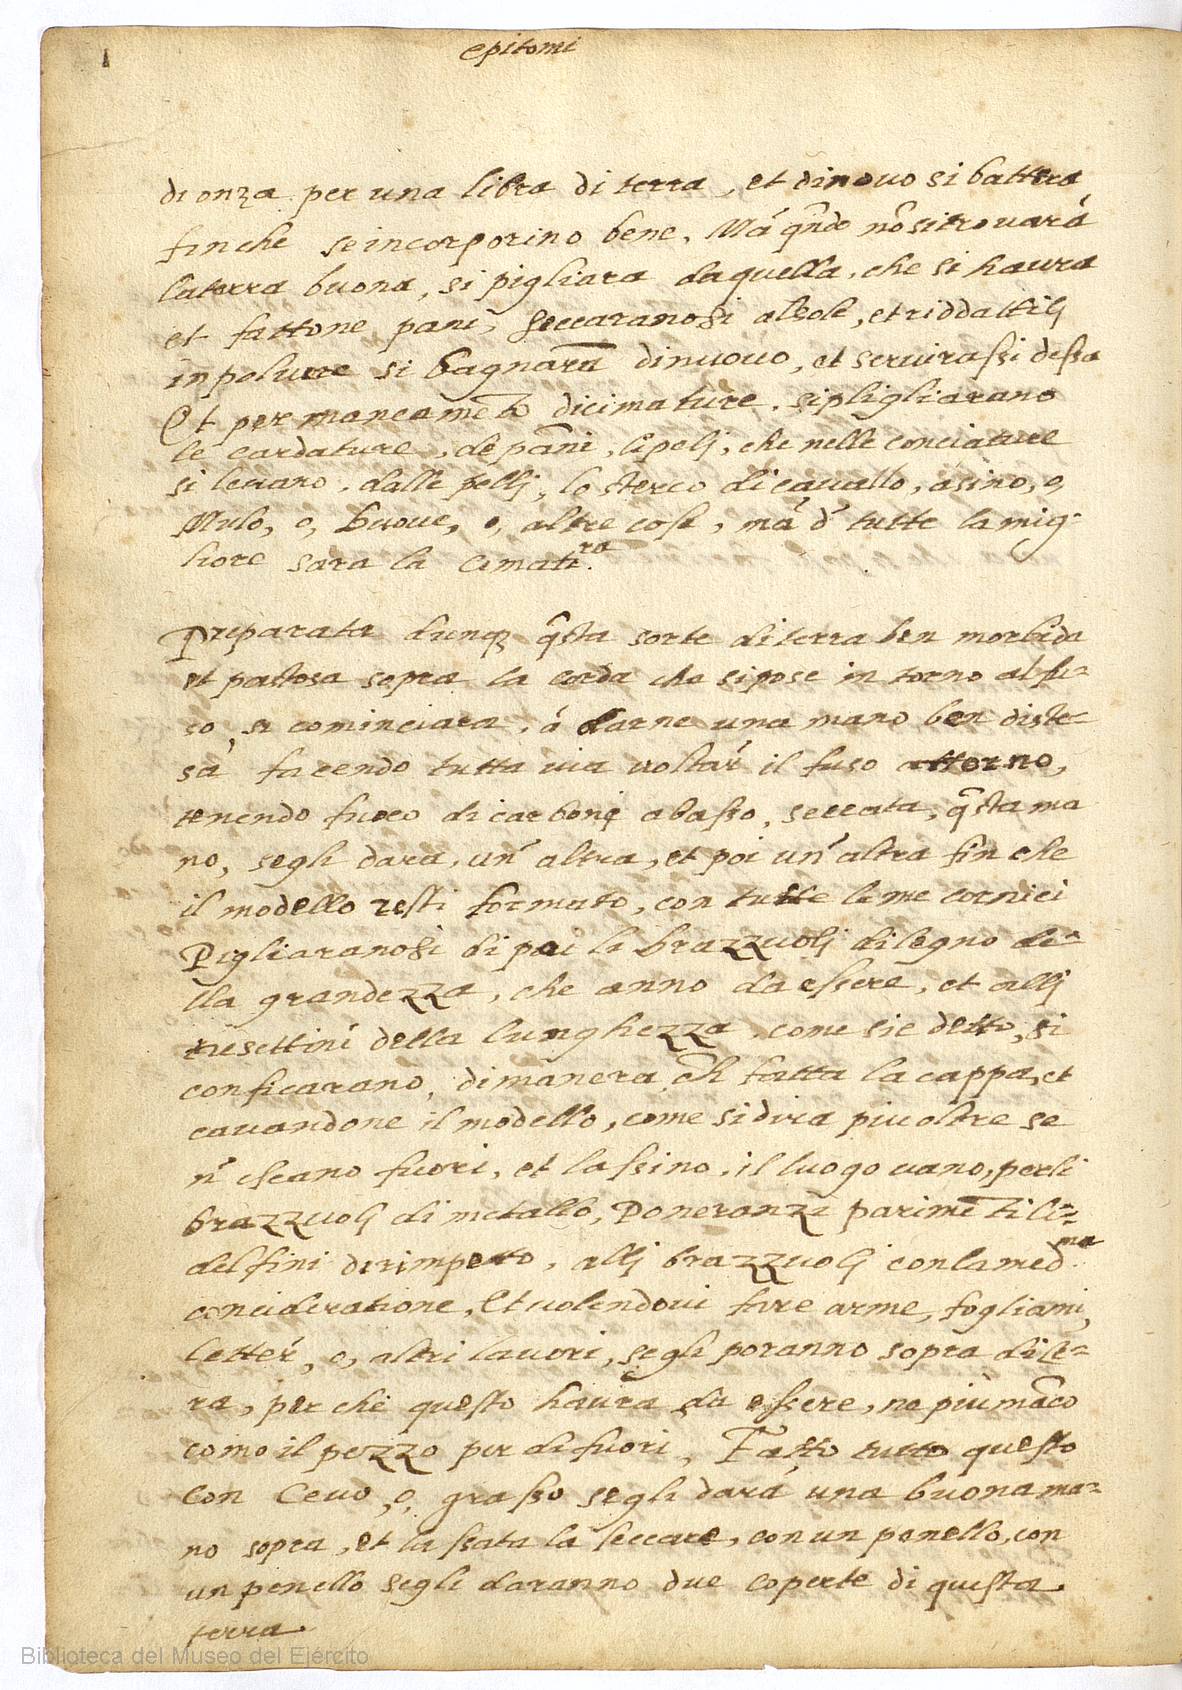 1
epitomi
di onza per una libra di terra, et dinovo si battera
finche se incorporino bene, Má qñdo nõ si trovará
la terra buona, si pigliara da quella, che si haura
et fattone pani, seccaranosi al sole, et riddattili
in polvere si bagnara dinuovo, et servirassi dessa
Et per mancamẽto di cimature, si pligliarano
le cardature, de pãni, li peli, che nelle conciature
si levano, dalle pelli, lo sterco di cavallo, asino, o,
Mulo, o, buoue, o, altre cose, má d' tutte la mig-
liore sara la cimatra.
Preparata dunq; q̃sta sorte di terra ben morbida
et pastosa sopra la corda che si pose in torno al fu-
so, si cominciara, á darne una mano ben diste-
sa facendo tutta via voltar il fuso attorno,
tenendo fuoco di carboni abasso, seccata, q̃sta ma
no, segli dara, un' altra, et poi un' altra fin che
il modello resti formato, con tutte le me cornici
Pigliaranosi di poi li brazzuoli di legno de-
lla grandezza, che anno da essere, et alli
tresettini della lunghezza, come si e detto, si
conficarano, di manera ch̃ fatta la cappa, et
cavandone il modello, come si dira piu oltre se
n' escano fuori, et lassino, il luogo vano, per li
brazzuoli di metallo, Poneranzi parimẽti li=
delfini dirimpeto, alli brazzuoli con la medma
concideratione, Et volendovi fare arme, fogliami,
letter', o, altri lavori, segli poranno sopra di ce-
ra, per che questo haura da essere, ne piu mãco
como il pezzo per di fuori, Fatto tutto questo
con Cevo, o, grasso segli dará una buona ma-
no sopra, et lassata la seccare, con un penello, con
un penello segli daranno due coperte di questa
terra.
Biblioteca del Museo del Ejército